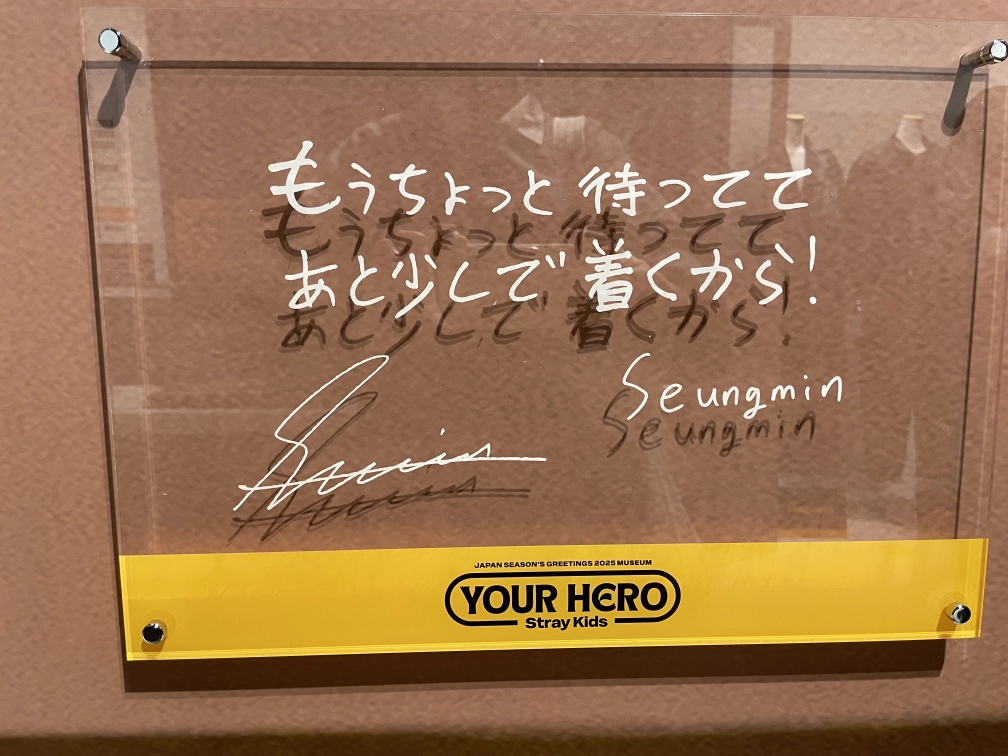 もうちょっと 待ってて
あと少しで 着くから!
Seungmin
JAPAN SEASON'S GREETINGS 2025 MUSEUM
YOUR HERO
Stray Kids